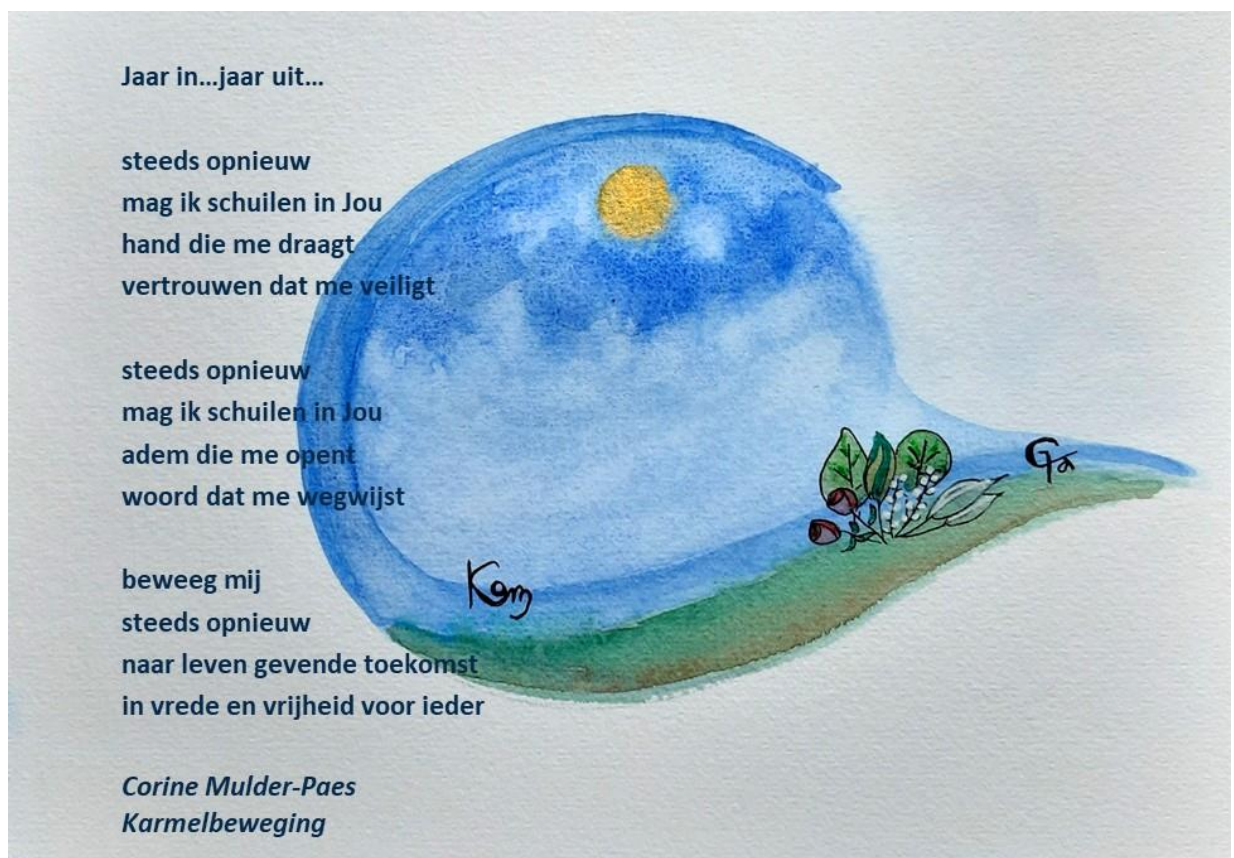 Jaar in...jaar uit...
steeds opnieuw
mag ik schuilen in Jou
hand die me draagt
vertrouwen dat me veiligt
steeds opnieuw
mag ik schuilen in Jou
adem die me opent
woord dat me wegwijst
beweeg mij
steeds opnieuw
naar leven gevende toekomst
in vrede en vrijheid voor ieder
Corine Mulder-Paes
Karmelbeweging